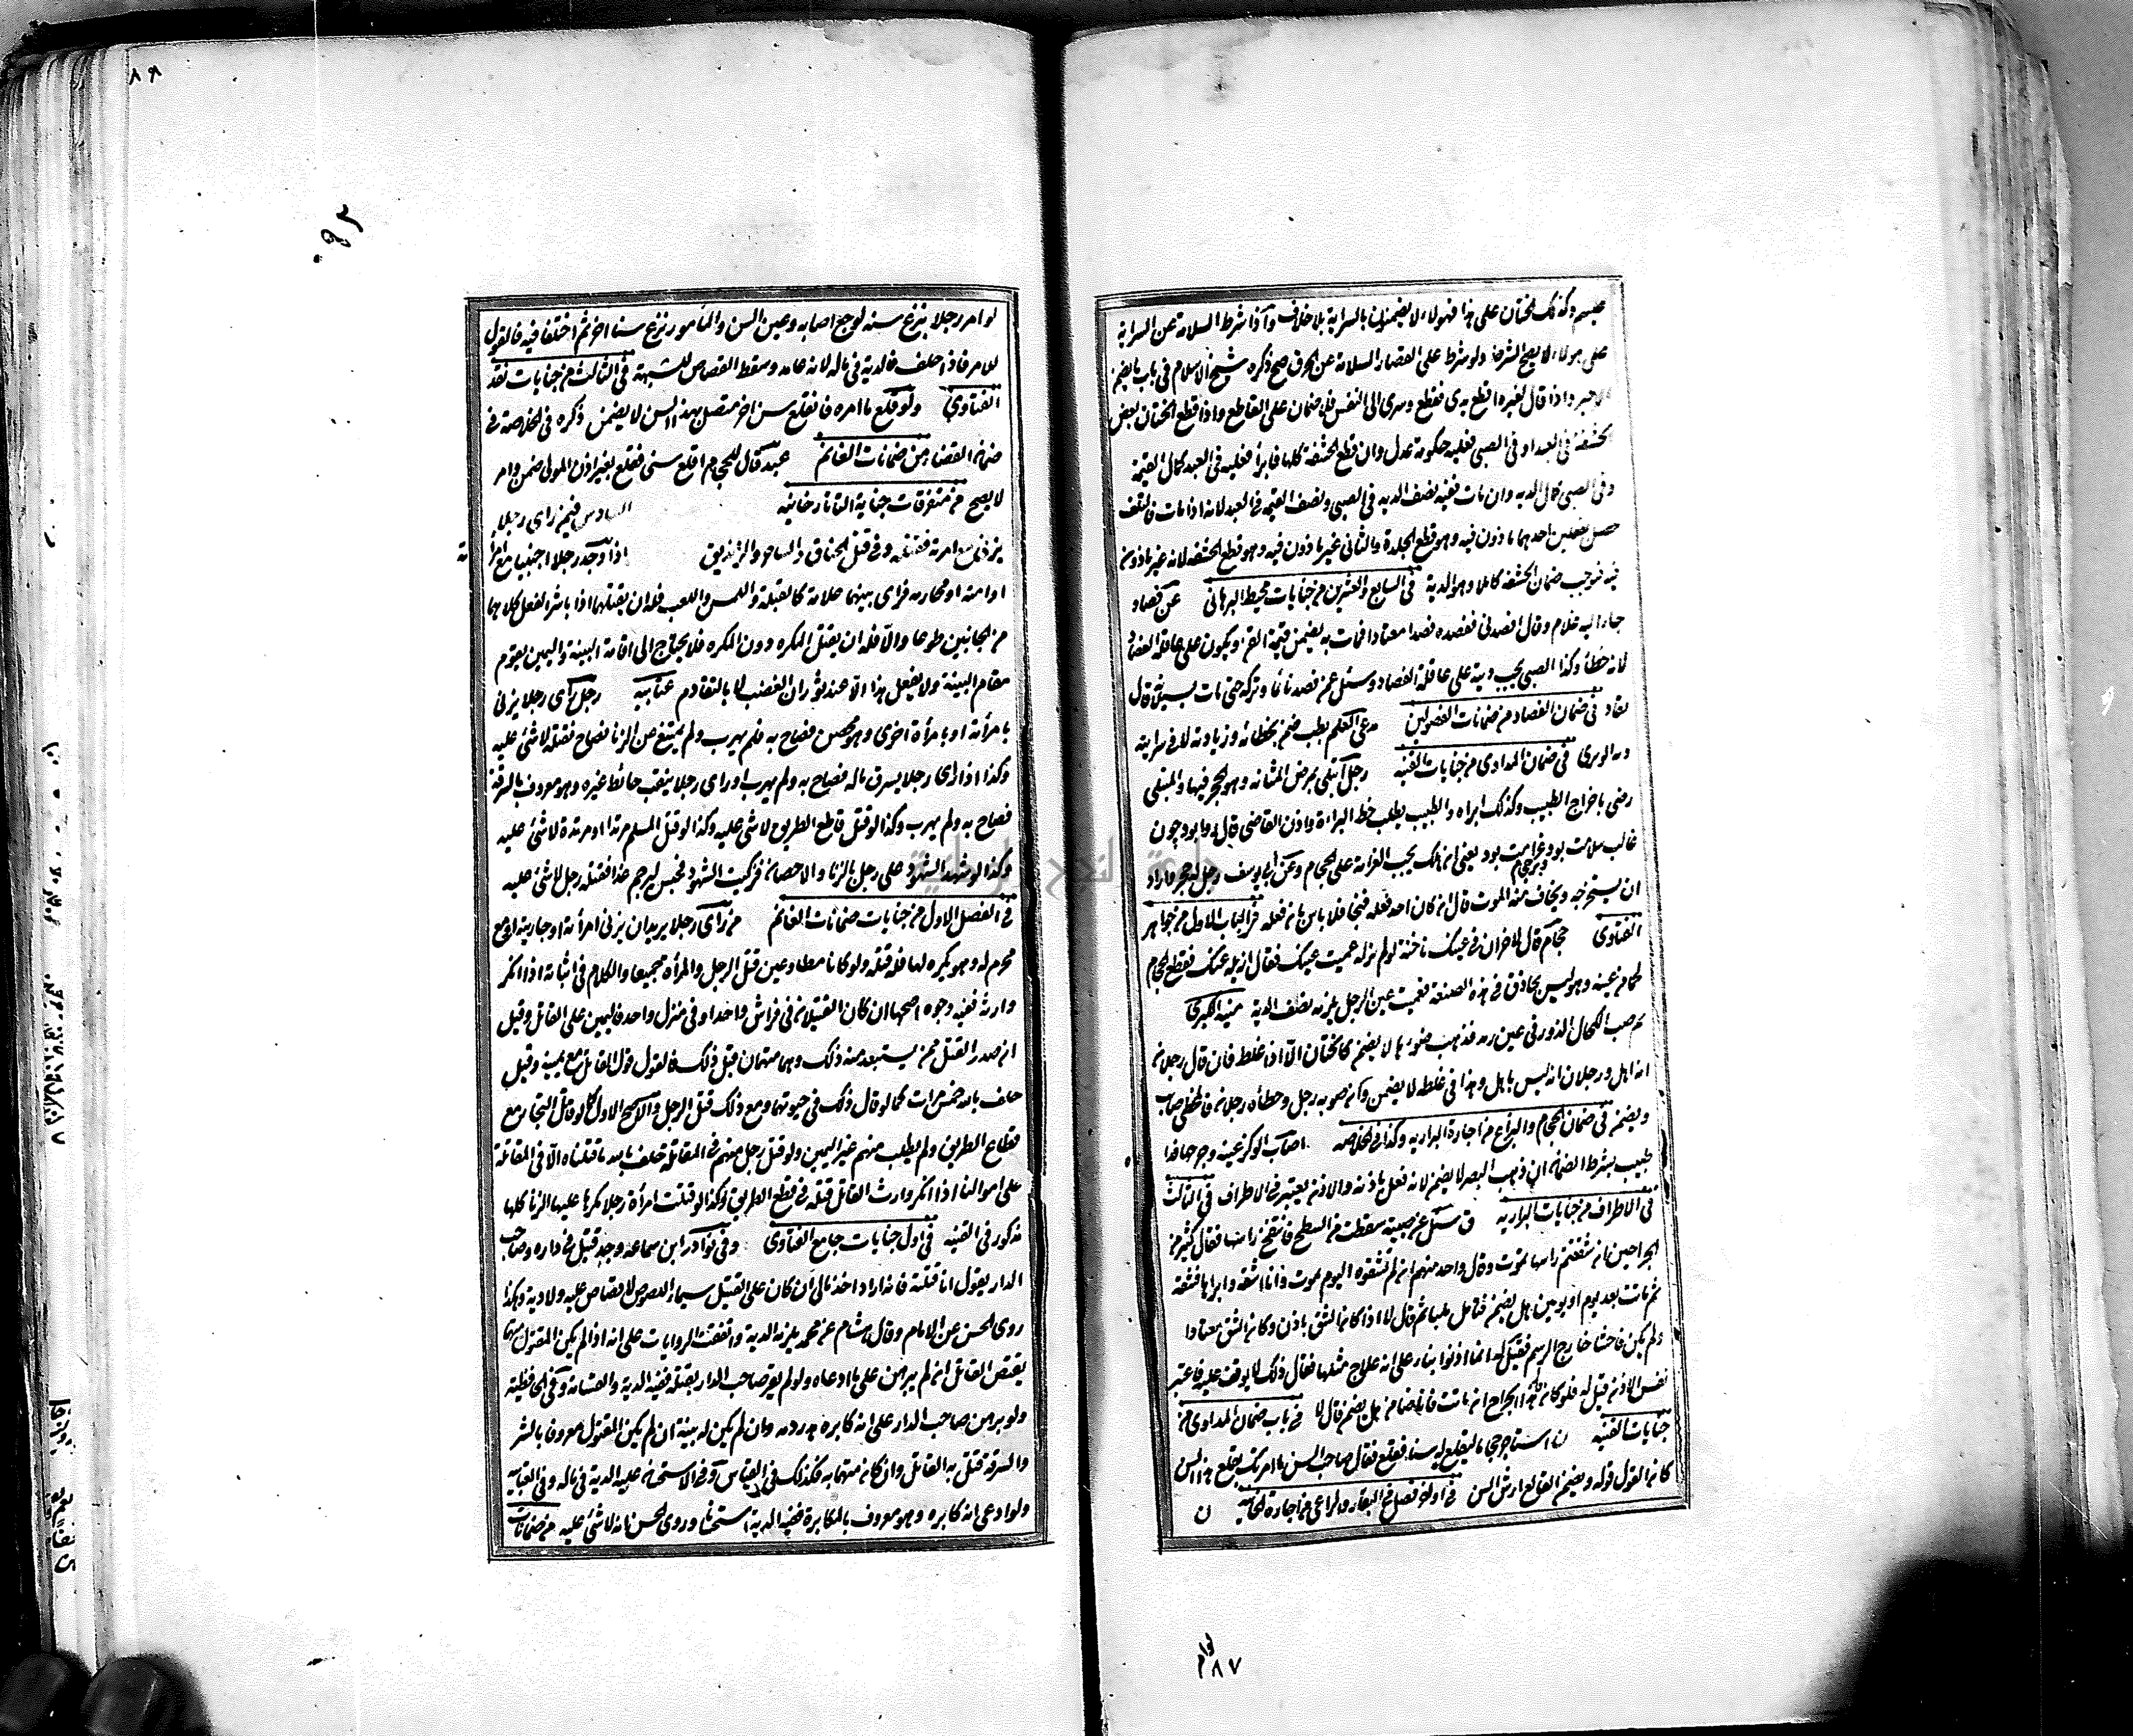 عبسه وكذلك الختان على هذا فهولاء لا يضمنون بالسراية بلا خلاف وإذا شرط السلامة عن السراية
على هولاء لا يصح الشرط ولو شرط على القصار السلامة عن الخرق صح ذكره شيخ الاسلام في باب ما يضمن
الاجير واذا قال لغيره اقطع يدي فقطع وسرى الى النفس فلا ضمان على القاطع واذا قطع الختان بعض
الحشفة في العبد او في الصبي فعليه حكومة عدل وان قطع الحشفة كلها فبرأ فعليه في العبد كمال القيمة
وفي الصبي كمال الدية وان مات ففيه نصف الدية في الصبي ونصف القيمة في العبد لانه اذا مات فالتلف
حصل بفعلين احدهما ماذون فيه وهو قطع الجلدة والثاني غير ماذون فيه وهو قطع الحشفة لانه غير ماذون
فيه فوجب ضمان الحشفة كاملا وهو الدية في السابع والعشرين من جنايات محيط البرهاني عن فصاد
جاء اليه غلام وقال افصدني ففصده فصدا معتادا فمات به يضمن قيمة القن ويكون على عاقلة الفصاد
لانه خطأ وكذا الصبي يجب دية على عاقلة الفصاد وسئل عمن فصد نائما وتركه حتى مات بسيلانه قال
يقاد في ضمان الفصاد من ضمانات الفصولين مدعي العلم بطب ضمن بخطائه وزيادته لا في سرايته
فى ضمان المداوى من جنايات القنية رجل ابتلى بمرض المثانة وهو الحجر فيها والمبتلى
رضى باخراج الطبيب وكذلك ابراه والطبيب يطلب خط البراءة واذن القاضي قال چون
غالب سلامت بود غرامت بود يعني ان هلك يجب الغرامة على الحجام وعن ابي يوسف رجل له حجر فاراد
ان يستخرجه ويخاف منه الموت قال ان كان احد فعله فنجا فلا باس بان فعله من الباب الاول من جواهر
الفتاوى حجام قال لاخر ان في عينك ناخنة لو لم تزله عميت عينك فقال ازيله عنك فقطع الحجام
لحما من عينه وهو ليس بحاذق في هذه الصنعة فعميت عين الرجل يلزمه نصف الدية منية الكبرى
صب الكحال الذرور في عين رمد فذهب ضوءها لا يضمن كالختان الا اذا غلط فان قال رجلان
انه اهل ورجلان انه ليس باهل وهذا في غلطه لا يضمن وان صوبه رجل وخطأه رجلان فالمخطئ صائب
ويضمن في ضمان الحجام والبزاغ من اجارة البزازية وكذا في الخلاصة
طبيب بشرط الضمان ان ذهب البصر لا يضمن لانه فعل باذنه والاذن يعتبر في الاطراف في الثالث
في الاطراف من جنايات البزازية سئل عن صبية سقطت من السطح فانتفخ راسها فقال كثير من
الجراحين ان شققتم راسها تموت وقال واحد منهم ان لم تشقوه اليوم تموت وانا اشقه وابراها فشقه
ثم ماتت بعد يوم او يومين هل يضمن فتامل مليا ثم قال لا اذا كان الشق باذن وكان الشق معتادا
ولم يكن فاحشا خارج الرسم فقيل له انما اذنوا بناء على انه علاج مثلها فقال ذلك لا يوقف عليه فاعتبر
نفس الاذن قيل له فلو كان قال هذا الجراح ان ماتت فانا ضامن هل يضمن قال لا في باب ضمان المداوى من
جنايات القنية ن استاجر حجاما ليقلع له سنا فقلع فقال صاحب السن ما امرتك بقلع هذا السن
كان القول قوله ويضمن القالع ارش السن في اوله فصل في البقار والراعي من اجارة الخانية ن
٨٧
٨٨
لو امر رجلا بنزع سنه لوجع اصابه وعين السن والمأمور نزع سنا اخر ثم اختلفا فيه فالقول
للامر فاذا حلف فالدية في ماله لانه عامد وسقط القصاص للشبهة في الثالث من جنايات نقد
الفتاوى ولو قلع ما امره فانقلع سن اخر متصل بهذا السن لا يضمن ذكره في الخلاصة في
ضمان القصار من ضمانات الغانم عبد قال للحجام اقلع سني فقلع بغير اذن المولى ضمن وامره
لا يصح من متفرقات جناية التاتارخانية السادس فيمن راى رجلا
يزني مع امرته فقتله وفي قتل الخناق والساحر والزنديق اذا وجد رجلا اجنبيا مع امرأته
او امته او محارمه فراى بينهما علامة كالقبلة واللمس واللعب فله ان يقتلهما اذا باشر الفعل كلاهما
من الجانبين طوعا والا فله ان يقتل المكره دون المكره فلا يحتاج الى اقامة البينة واليمين يقوم
مقام البينة ولا يفعل هذا الا عند ثوران الغضب لا بالتقادم عتابية رجل راى رجلا يزني
بامرأته او بامرأة اخرى وهو محصن فصاح به فلم يهرب ولم يمتنع عن الزنا فصاح فقتله لا شئ عليه
وكذا اذا راى رجلا يسرق ماله فصاح به ولم يهرب او راى رجلا ينقب حائط غيره وهو معروف بالسرقة
فصاح به ولم يهرب وكذا لو قتل قاطع الطريق لا شئ عليه وكذا لو قتل المسلم مرتدا او مرتدة لا شئ عليه
وكذا لو شهد الشهود على رجل بالزنا والاحصان فزكيت الشهود فحبس ليرجم غدا فقتله رجل لا شئ عليه
في الفصل الاول من جنايات ضمانات الغانم من راى رجلا يريد ان يزني امرأته او جاريته او مع
محرم له وهو يكره لها فله قتله ولو كانا مطاوعين قتل الرجل والمرأة جميعا والكلام في اثباته اذا انكر
وارثه ففيه وجوه اصحها ان كان القتيلان في فراش واحد او في منزل واحد فاليمين على القاتل وقيل
ان صدر القتل ممن يستبعد منه ذلك وهما متهمان قبل ذلك فالقول قول القاتل مع يمينه وقيل
حلف بالله خمس مرات كما لو قال ذلك في حيوتهما ومع ذلك قتل الرجل والاصح الاول كما لو قاتل التجار مع
قطاع الطريق ولم يطلب منهم غير اليمين ولو قتل رجل منهم في المقاتلة حلف بالله ما قتلناه الا في المقاتلة
على اموالنا اذا انكر وارث القاتل قتله في قطع الطريق وكذا لو قتلت امرأة رجلا مكرها عليها الزنا كلها
مذكور في القنية في اول جنايات جامع الفتاوى وفي نوادر ابن سماعة وجد قتيل في داره وصاحب
الدار يقول انا قتلته فانه اراد اخذ مالي ان كان على القتيل سيماء اللصوص لا قصاص عليه ولا دية وهكذا
روى الحسن عن الامام وقال هشام عن محمد يلزمه الدية واتفقت الروايات على انه اذا لم يكن المقتول متهما
يقتص القاتل ان لم يبرهن على ما ادعاه ولو لم يقر صاحب الدار بقتله ففيه الدية والقسامة
ولو برهن صاحب الدار على انه كابره هدر دمه وان لم يكن له بينة ان لم يكن المقتول معروفا بالشر
والسرقة قتل به القاتل وان كان متهما به فكذلك في القياس وفي الاستحسان عليه الدية في ماله
ولو ادعى انه كابره وهو معروف بالمكابرة ففيه الدية استحسانا وروى الحسن انه لا شئ عليه من ضمانات